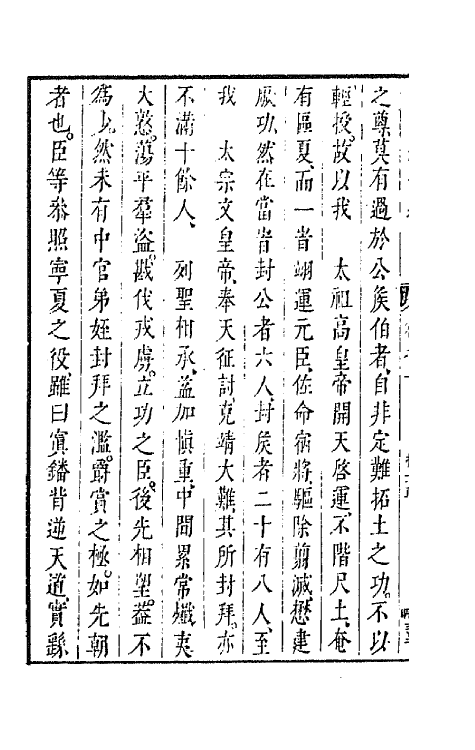 之尊莫有過於公矦伯者、自非定難拓土之功、不以
輕授、故以我　太祖高皇帝開天啓運、不階尺土、奄
有區夏、而一旹翊運元臣、佐命宿將、驅除翦滅、懋建
厥功、然在當旹封公者六人、封矦者二十有八人、至
我　太宗文皇帝、奉天征討、克靖大難、其所封拜、亦
不滿十餘人、　列聖相承、益加愼重、中間累常殱夷
大憝、蕩平羣盜、戡伐戎虜、立功之臣、後先相望、葢不
爲少、然未有中官弟姪封拜之濫、爵賞之極、如先朝
者也。臣等叅照寧夏之役、雖曰寘鐇背逆天道、實繇